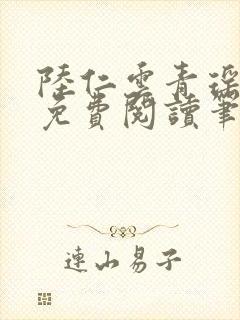 陸仁雲青瑤
免費閱讀筆
連山易子